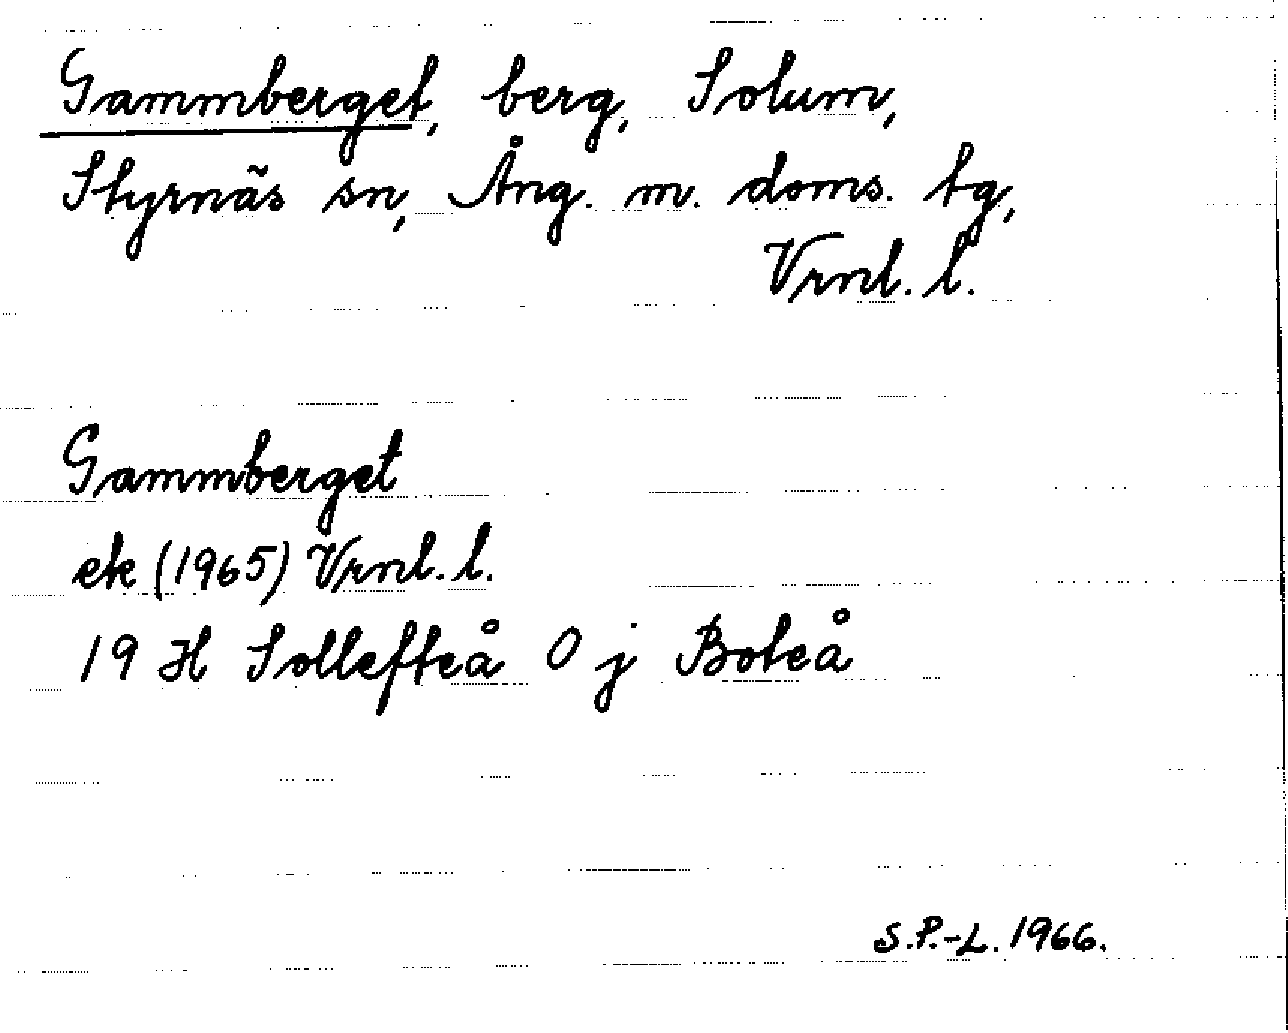 Gammberget, berg, Solum,
Styrnäs sn, Ång. m. doms. tg,
Vrnl. l.
Gammberget
ek (1965) Vrnl. l.
19 H Sollefteå O j Boteå
S.P.-L. 1966.